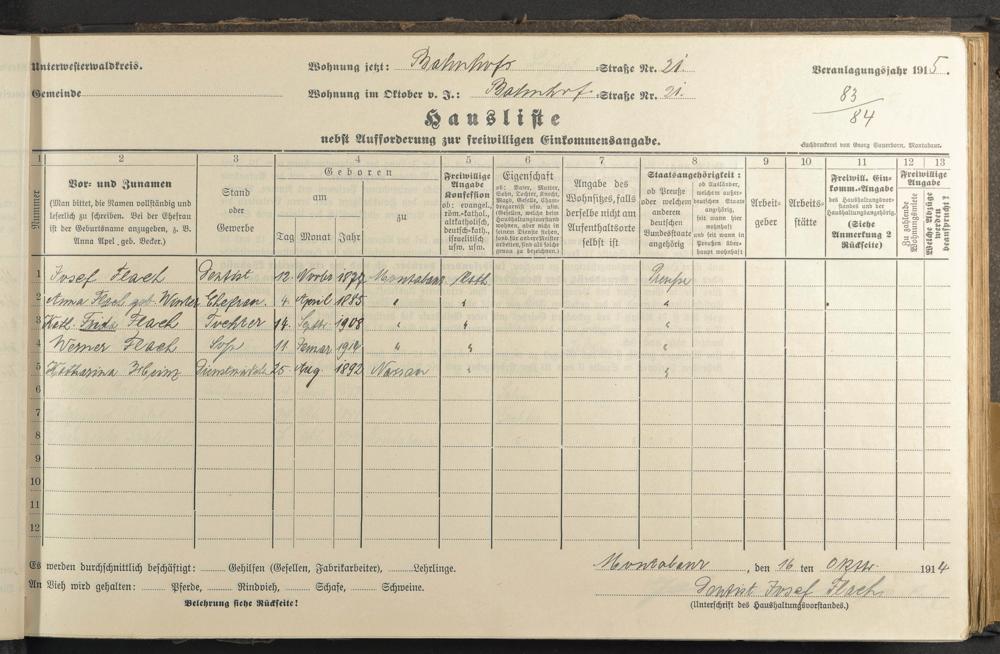 Unterwesterwaldkreis.
Wohnung jetzt: Bahnhofs Straße Nr. 21.
Veranlagungsjahr 1915.
Gemeinde
Wohnung im Oktober v. J.: Bahnhof Straße Nr. 21.
83
84
Hausliste
nebst Aufforderung zur freiwilligen Einkommensangabe.
Buchdruckerei von Georg Sauerborn, Montabaur.
1 2 3 4 5 6 7 8 9 10 11 12 13
Nummer
Vor- und Zunamen
(Man bittet, die Namen vollständig und
leserlich zu schreiben. Bei der Ehefrau
ist der Geburtsname anzugeben, z. B.
Anna Apel, geb. Becker.)
Stand
oder
Gewerbe
Geboren
am
zu
Tag Monat Jahr
Freiwillige
Angabe
Konfession
ob: evangel.,
röm.-kathol.,
altkatholisch,
deutsch-kath.,
israelitisch
usw. usw.
Eigenschaft
ob: Vater, Mutter,
Sohn, Tochter, Knecht,
Magd, Geselle, Cham-
bregarnist usw. usw.
(Gesellen, welche beim
Haushaltungsvorstand
wohnen, aber nicht in
seinem Dienste stehen,
sond. für andere Meister
arbeiten, sind als solche
genau zu bezeichnen.)
Angabe des
Wohnsitzes, falls
derselbe nicht am
Aufenthaltsorte
selbst ist
Staatsangehörigkeit:
ob Preuße
oder welchem
anderen
deutschen
Bundesstaate
angehörig
ob Ausländer,
welchem außer-
deutschen Staate
angehörig,
seit wann hier
wohnhaft
und seit wann in
Preußen über-
haupt wohnhaft
Arbeit-
geber
Arbeits-
stätte
Freiwill. Ein-
komm.-Angabe
des Haushaltungsvor-
standes und der
Haushaltungsangehörig.
(Siehe
Anmerkung 2
Rückseite)
Freiwillige
Angabe
Zu zahlende
Wohnungsmiete
Welche Abzüge
werden
beansprucht?
1 Josef Flach Dentist 12. Novbr 1877 Montabaur Kath Preuße
2 Anna Flach geb. Winter Ehefrau. 4. April 1885 " " "
3 Kath. Frida Flach Tochter 14. Septbr. 1908 " " "
4 Werner Flach Sohn 11. Januar 1914 " " "
5 Katharina Dienstmädch. 25. Aug. 1892 Nassau " "
6
7
8
9
10
11
12
Es werden durchschnittlich beschäftigt: Gehilfen (Gesellen, Fabrikarbeiter), Lehrlinge.
Montabaur, den 16 ten Oktbr. 1914
An Vieh wird gehalten: Pferde, Rindvieh, Schafe, Schweine.
Dentist Josef Flach
Belehrung siehe Rückseite!
(Unterschrift des Haushaltungsvorstandes.)